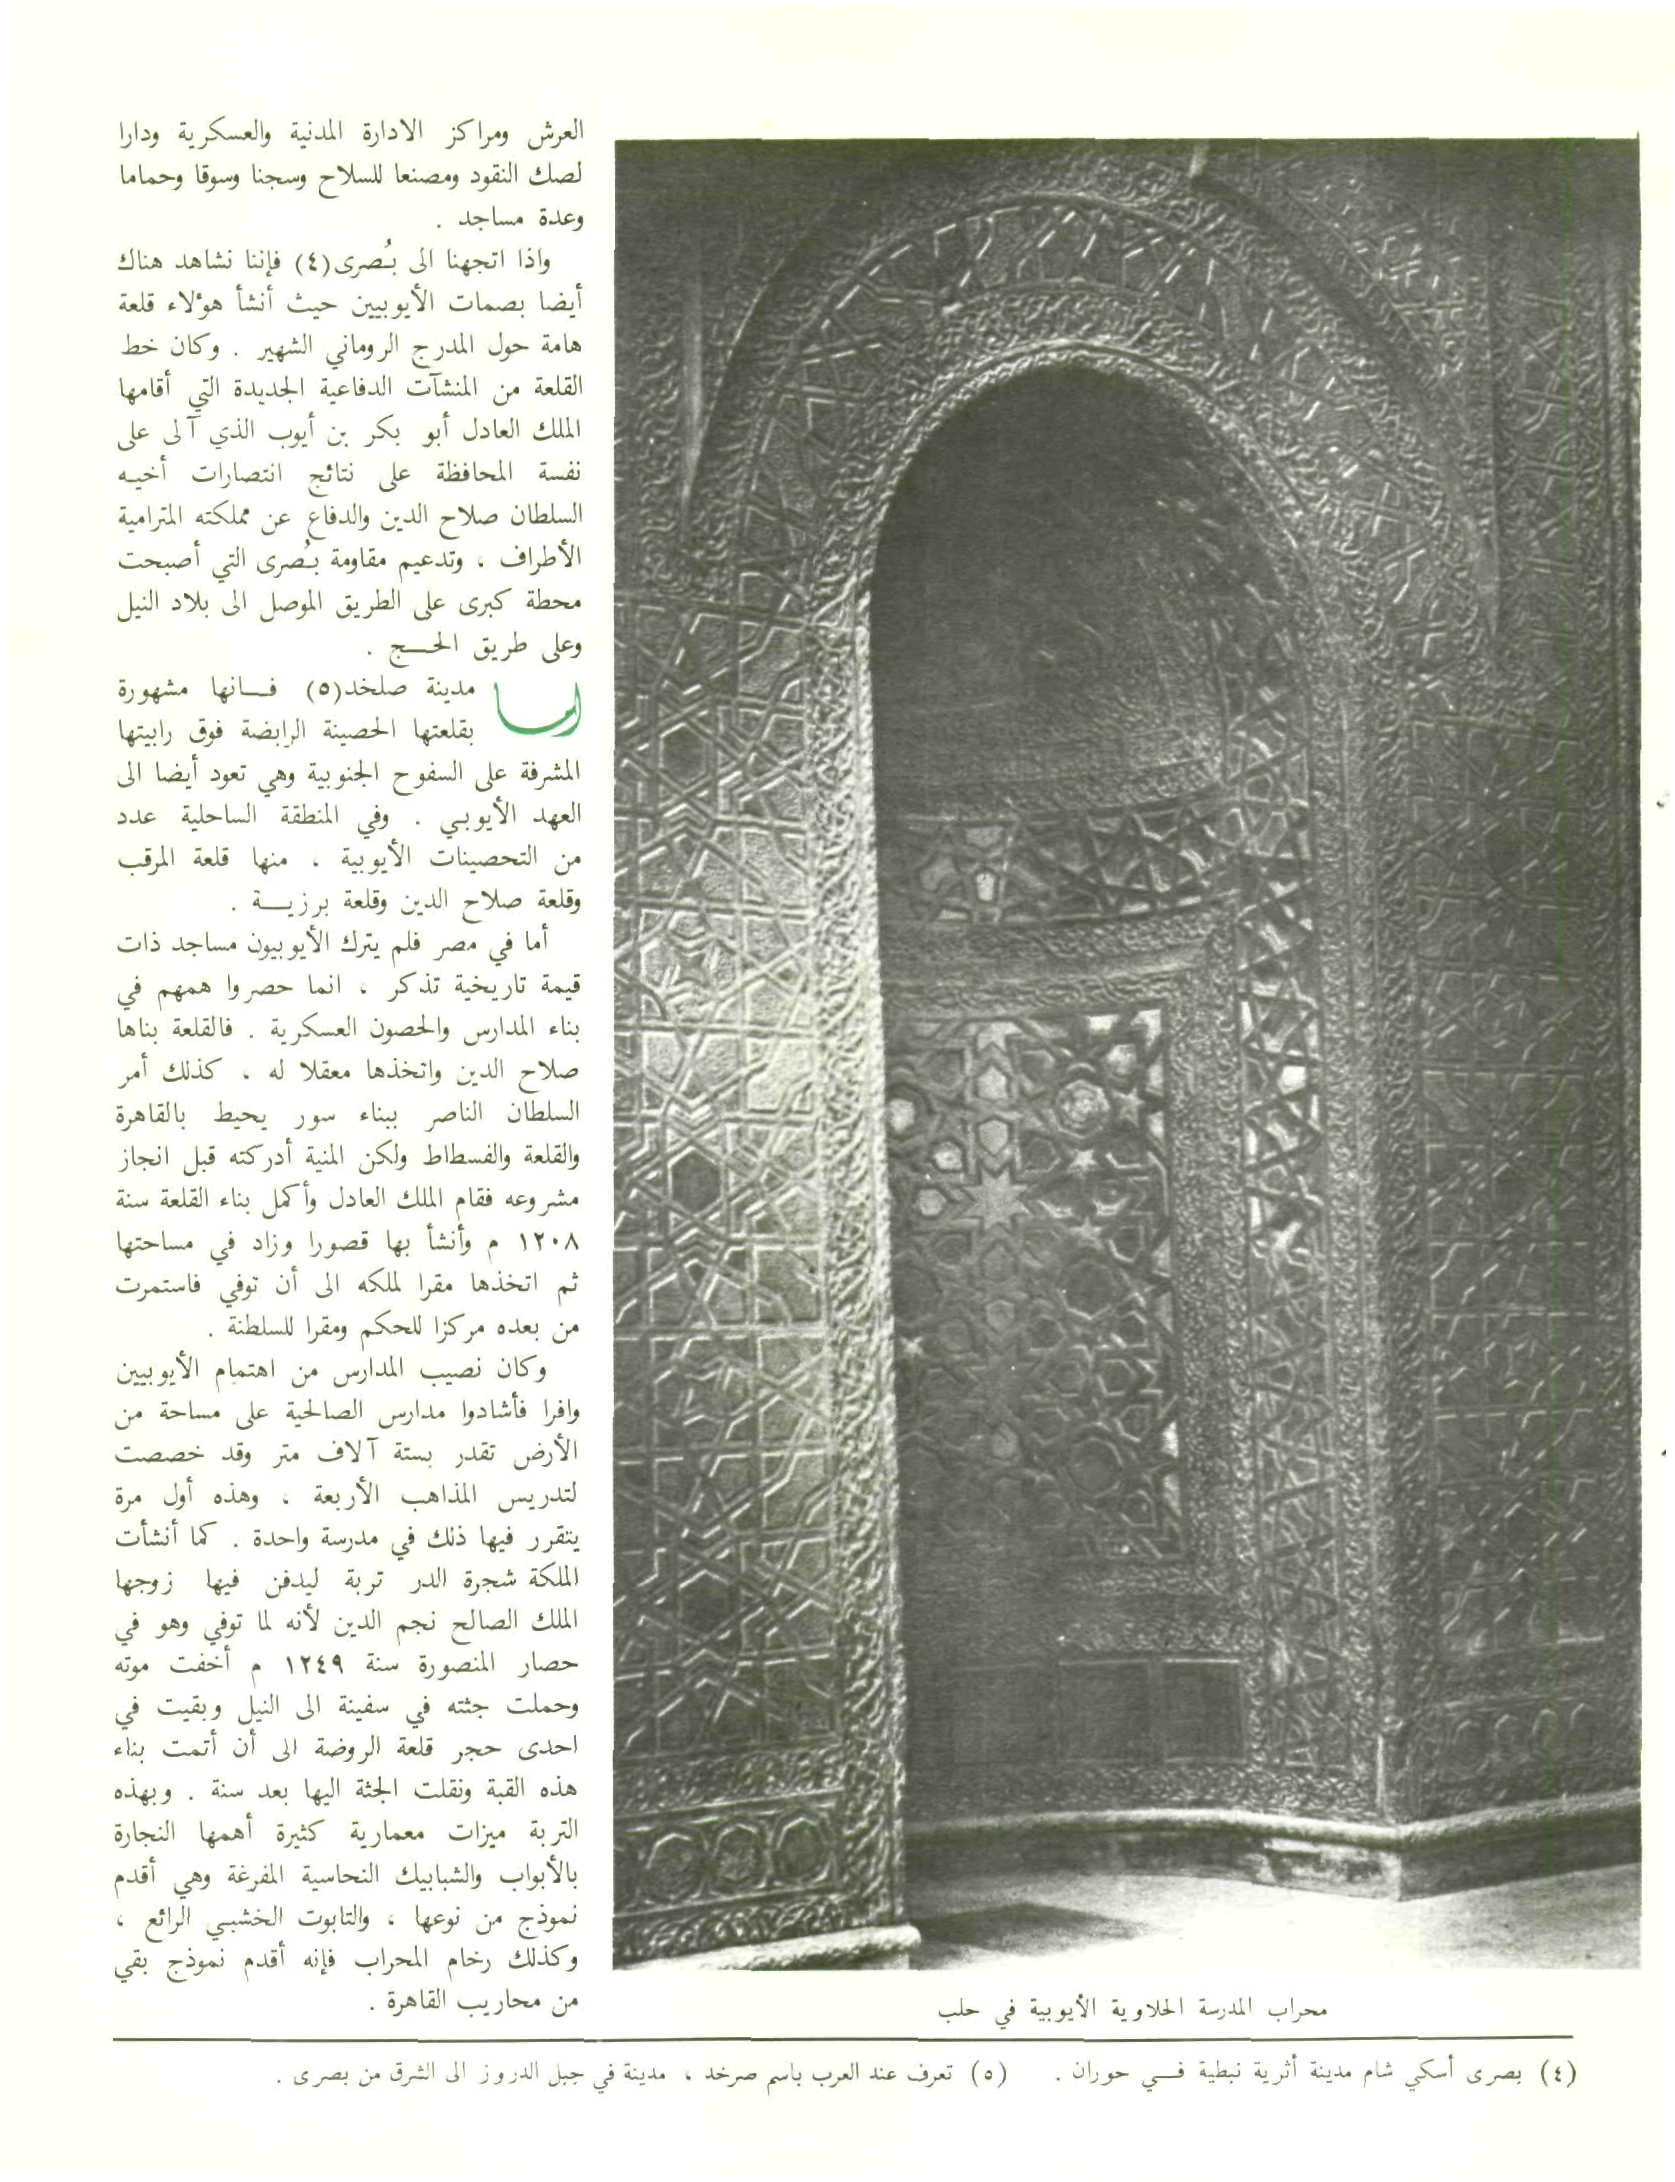 العرش ومراكز الادارة المدنية والعسكرية ودارا
لصك النقود ومصنعا للسلاح وسجنا وسوقا وحماما
وعدة مساجد .
واذا اتجهنا الى بُصرى(٤) فإننا نشاهد هناك
أيضا بصمات الأيوبيين حيث أنشأ هؤلاء قلعة
هامة حول المدرج الروماني الشهير . وكان خط
القلعة من المنشآت الدفاعية الجديدة التي أقامها
الملك العادل أبو بكر بن أيوب الذي آلى على
نفسة المحافظة على نتائج انتصارات أخيه
السلطان صلاح الدين والدفاع عن مملكته المترامية
الأطراف ، وتدعيم مقاومة بُصرى التي أصبحت
محطة كبرى على الطريق الموصل الى بلاد النيل
وعلى طريق الحج .
اما مدينة صلخد(٥) فانها مشهورة
بقلعتها الحصينة الرابضة فوق رابيتها
المشرفة على السفوح الجنوبية وهي تعود أيضا الى
العهد الأيوبي . وفي المنطقة الساحلية عدد
من التحصينات الأيوبية ، منها قلعة المرقب
وقلعة صلاح الدين وقلعة برزية .
أما في مصر فلم يترك الأيوبيون مساجد ذات
قيمة تاريخية تذكر ، انما حصروا همهم في
بناء المدارس والحصون العسكرية . فالقلعة بناها
صلاح الدين واتخذها معقلا له ، كذلك أمر
السلطان الناصر ببناء سور يحيط بالقاهرة
والقلعة والفسطاط ولكن المنية أدركته قبل انجاز
مشروعه فقام الملك العادل وأكمل بناء القلعة سنة
١٢٠٨ م وأنشأ بها قصورا وزاد في مساحتها
ثم اتخذها مقرا لملكه الى أن توفي فاستمرت
من بعده مركزا للحكم ومقرا للسلطنة .
وكان نصيب المدارس من اهتمام الأيوبيين
وافرا فأشادوا مدارس الصالحية على مساحة من
الأرض تقدر بستة آلاف متر وقد خصصت
لتدريس المذاهب الأربعة ، وهذه أول مرة
يتقرر فيها ذلك في مدرسة واحدة . كما أنشأت
الملكة شجرة الدر تربة ليدفن فيها زوجها
الملك الصالح نجم الدين لأنه لما توفي وهو في
حصار المنصورة سنة ١٢٤٩ م أخفت موته
وحملت جثته في سفينة الى النيل وبقيت في
احدى حجر قلعة الروضة الى أن أتمت بناء
هذه القبة ونقلت الجثة اليها بعد سنة . وبهذه
التربة ميزات معمارية كثيرة أهمها النجارة
بالأبواب والشبابيك النحاسية المفرغة وهي أقدم
نموذج من نوعها ، والتابوت الخشبي الرائع ،
وكذلك رخام المحراب فإنه أقدم نموذج بقي
من محاريب القاهرة .
محراب المدرسة الحلاوية الأيوبية في حلب
(٤) بصرى أسكي شام مدينة أثرية نبطية في حوران . (٥) تعرف عند العرب باسم صرخد ، مدينة في جبل الدروز الى الشرق من بصرى .